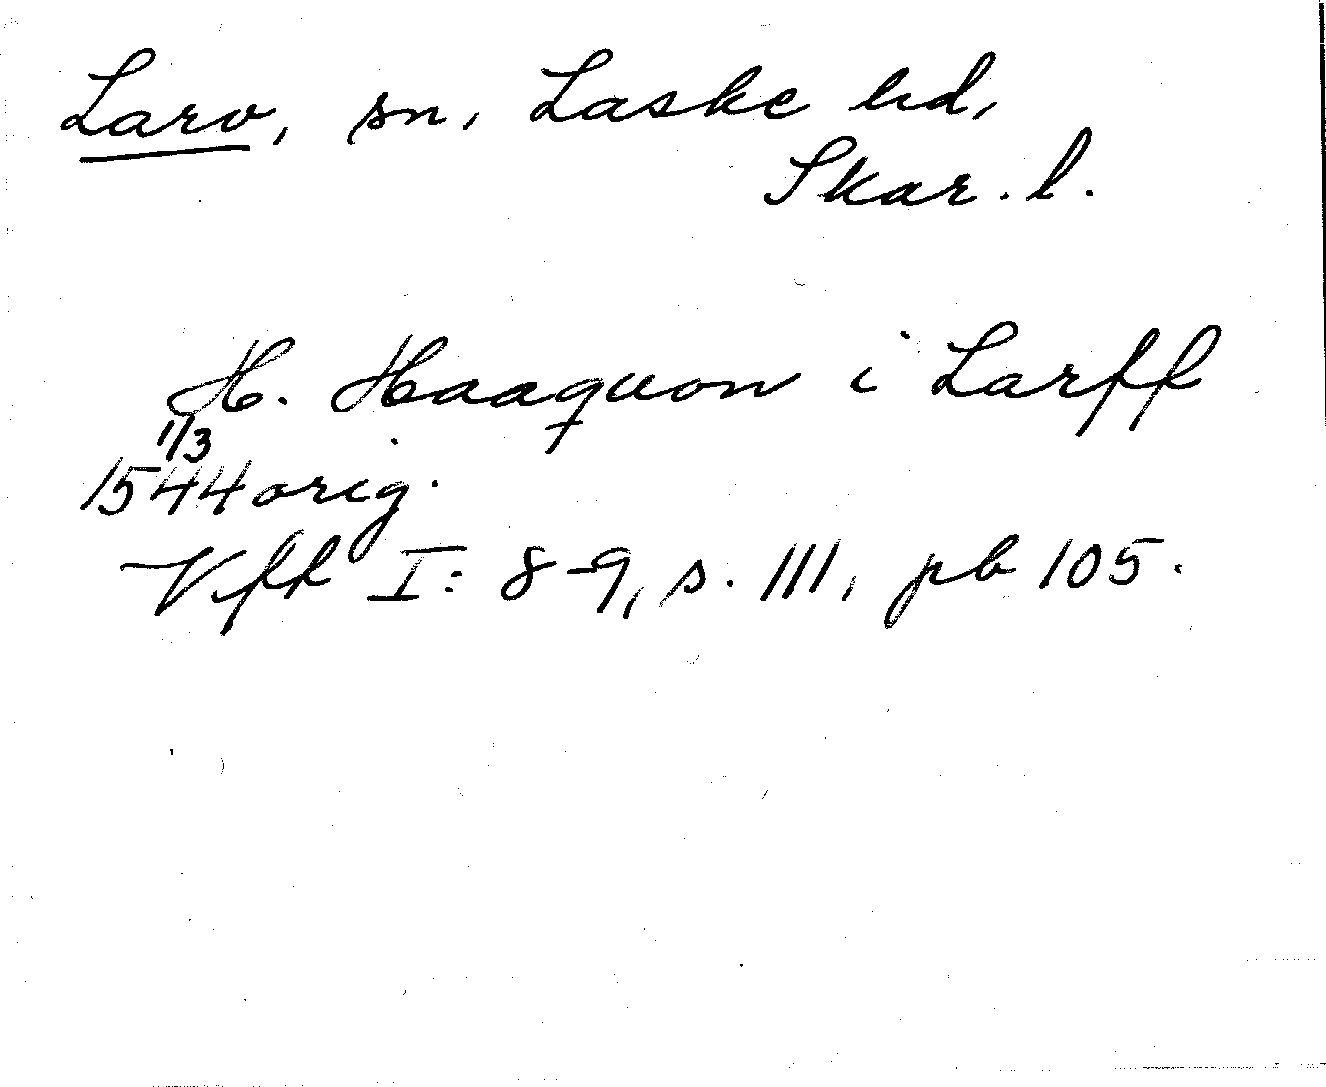 Larv, sn, Laske hd,
Skar. l.
H. Haaquon i Larff
1/3
1544 orig.
Vff I: 8-9, s. 111, pb 105.